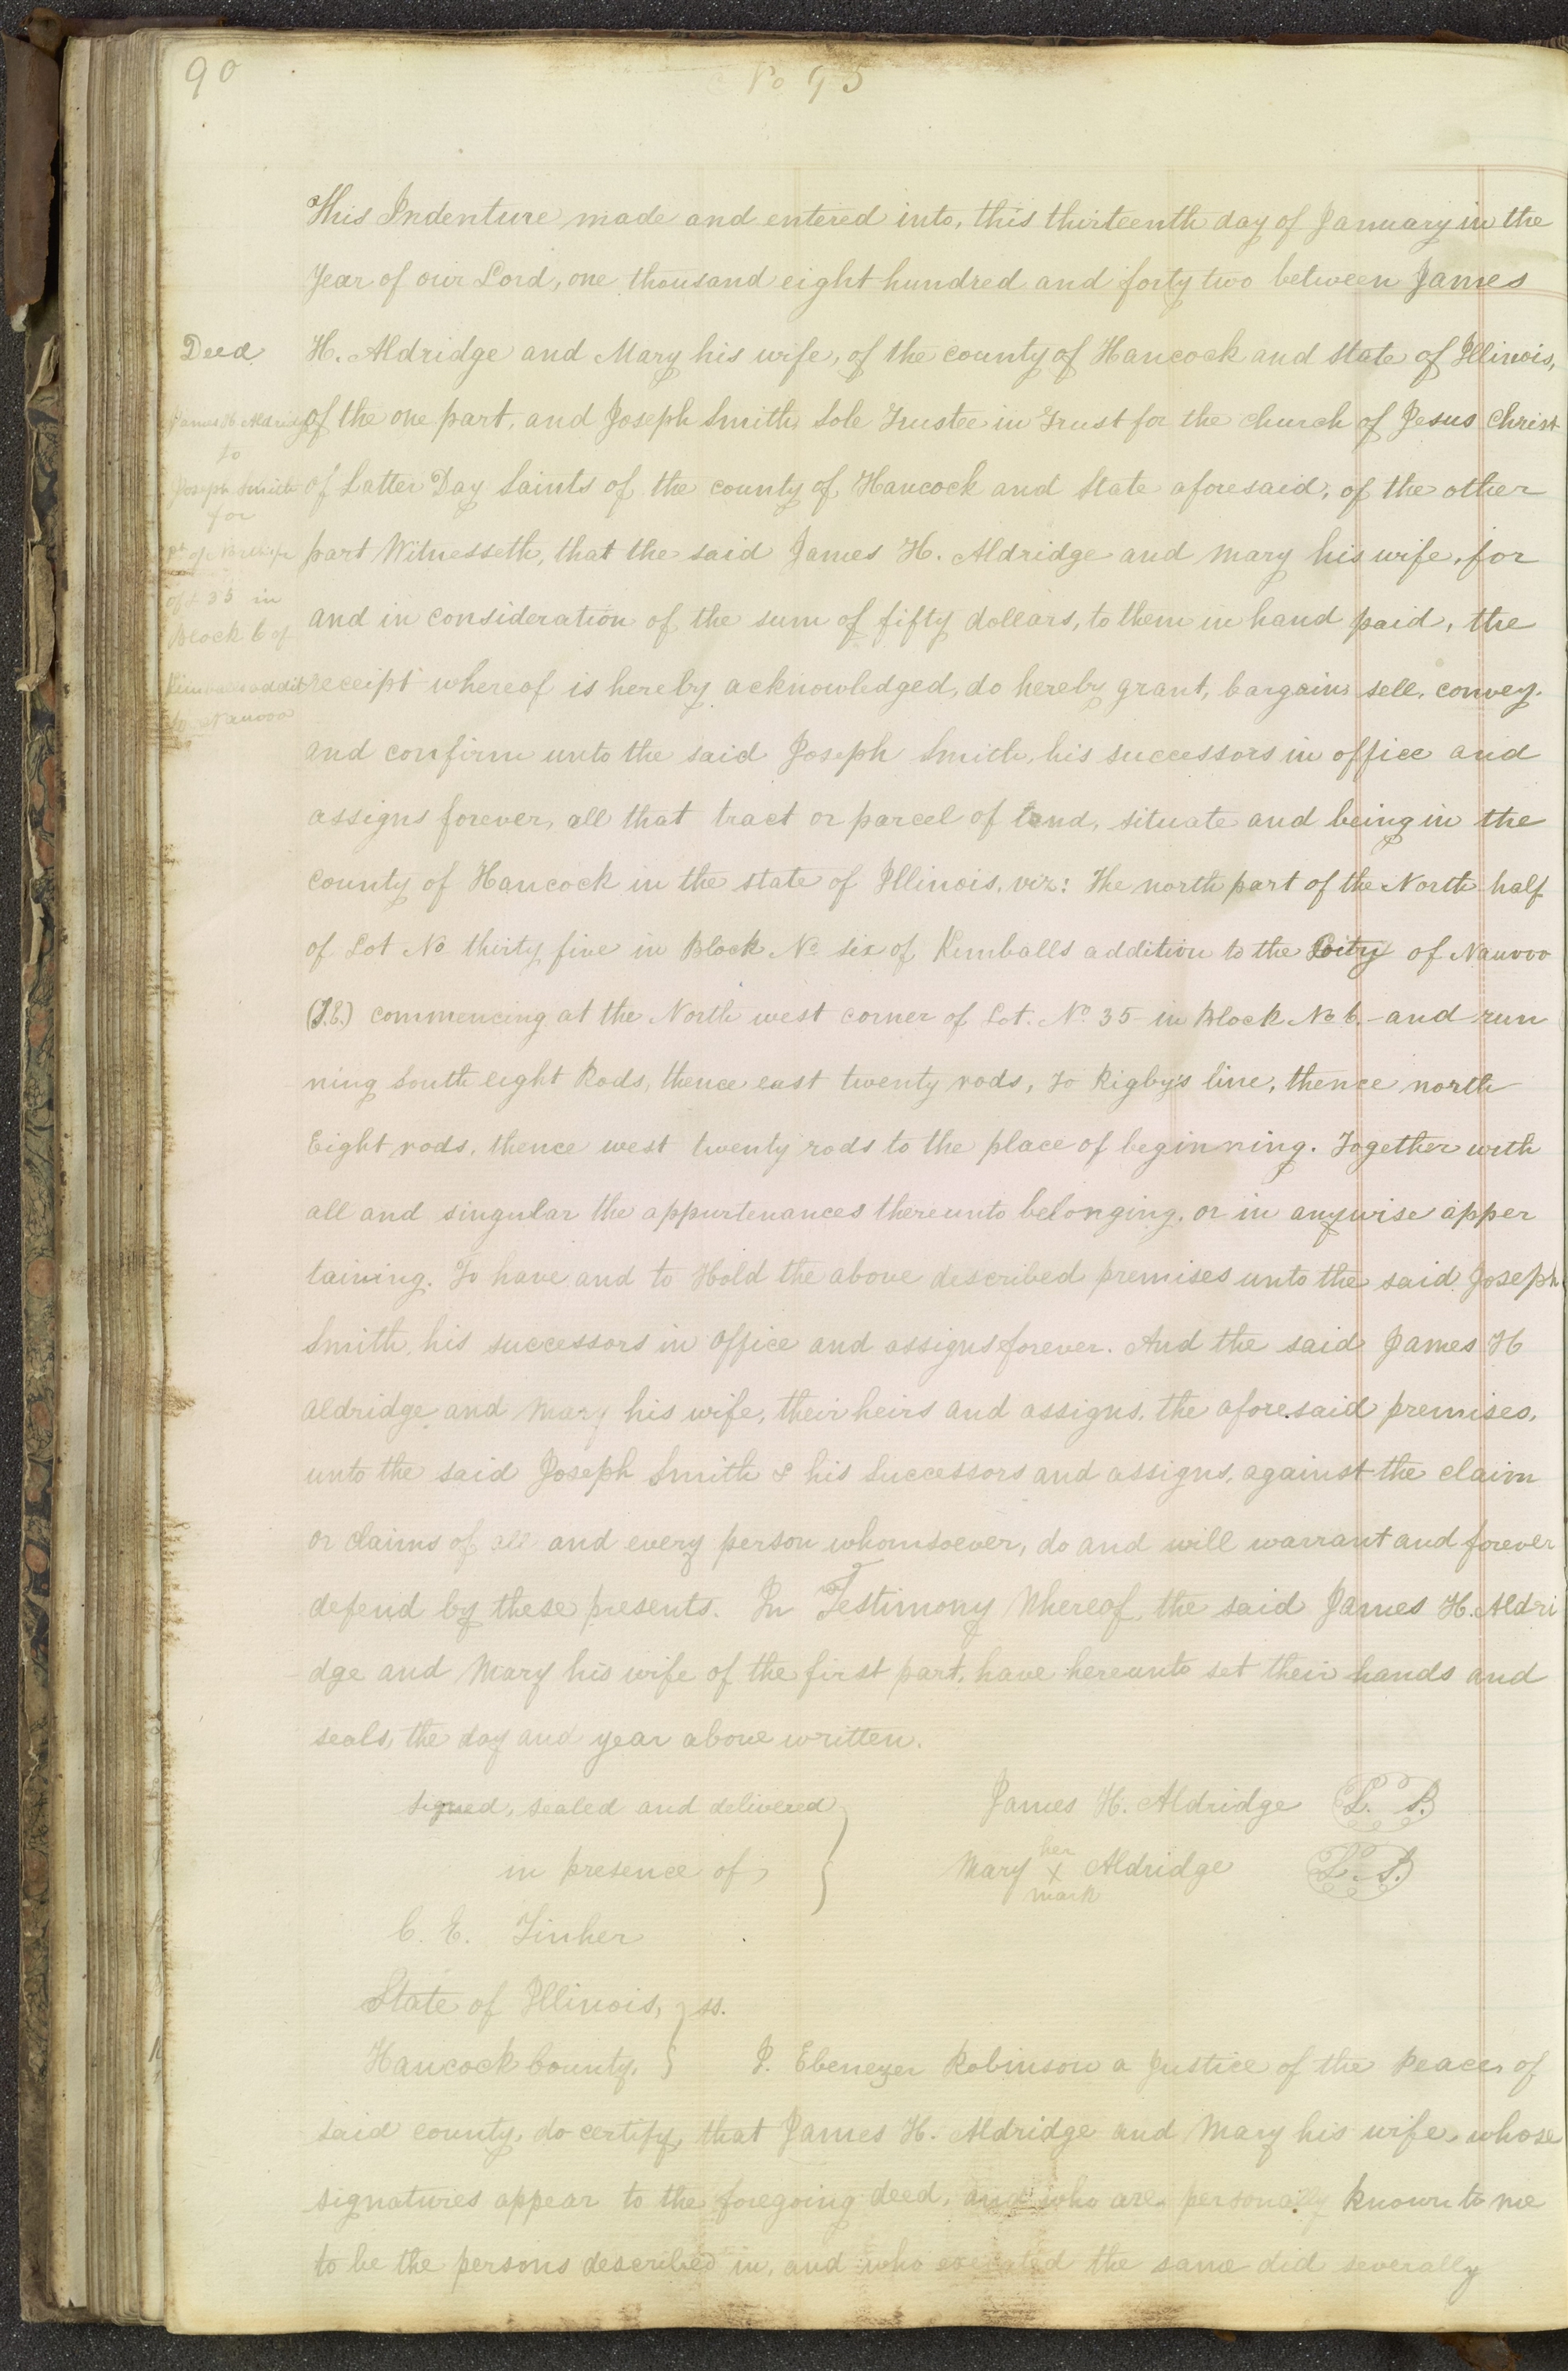 90
No 95
This Indenture made and entered into, this thirteenth day of January in the
Year of our Lord, one thousand eight hundred and forty two between James
Deed
H. Aldridge and Mary his wife, of the county of Hancock and State of Illinois,
James H Aldridge
of the one part, and Joseph Smith, Sole Trustee in Trust for the church of Jesus Christ
to
Joseph Smith
of Latter Day Saints of the county of Hancock and State aforesaid, of the other
for
pt of
part Witnesseth, that the said James H. Aldridge and Mary his wife, for
of L 35 in
Block 6 of
and in consideration of the sum of fifty dollars, to them in hand paid, the
Kimballs addit
receipt whereof is hereby acknowledged, do hereby grant, bargain, sell, convey.
to Nauvoo
and confirm unto the said Joseph Smith, his successors in office and
assigns forever, all that tract or parcel of land, situate and being in the
county of Hancock in the state of Illinois, viz: The north part of the North half
of Lot No thirty five in Block No six of Kimballs addition to the City of Nauvoo
(I.E.) commencing at the North west corner of Lot. No 35 in Block No 6. and run
ning South eight Rods, thence east twenty rods, to Rigby's line, thence north
Eight rods, thence west twenty rods to the place of beginning. Together with
all and singular the appurtenances thereunto belonging, or in anywise apper
taining. To have and to Hold the above described premises unto the said Joseph
Smith, his successors in office and assigns forever. And the said James H
Aldridge and Mary his wife, their heirs and assigns, the aforesaid premises,
unto the said Joseph Smith & his Successors and assigns, against the claim
or claims of all and every person whomsoever, do and will warrant and forever
defend by these presents. In Testimony Whereof, the said James H. Aldri
dge and Mary his wife of the first part, have hereunto set their hands and
seals, the day and year above written.
Signed, sealed and delivered
in presence of
James H. Aldridge L. S.
her
Mary X Aldridge L. S.
mark
C. E. Tinker
State of Illinois, ss.
Hancock County, I. Ebenezer Robinson a Justice of the Peace, of
said county, do certify, that James H. Aldridge and Mary his wife, whose
signatures appear to the foregoing deed, and who are personally known to me
to be the persons described in, and who executed the same did severally